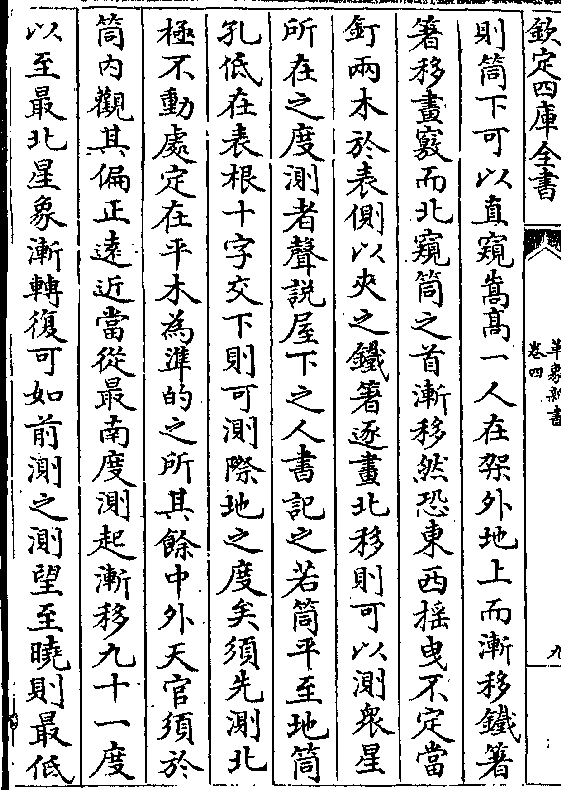 欽定四庫全書
革象新書
卷四
九
則筒下可以直窺嵩高一人在架外地上而漸移鐵箸
箸移畫竅而北窺筒之首漸移然恐東西揺曳不定當
釘兩木於表側以夾之鐵箸逐畫北移則可以測衆星
所在之度測者聲説屋下之人書記之若筒平至地筒
孔低在表根十字交下則可測際地之度矣須先測北
極不動處定在平木為準的之所其餘中外天官須於
筒内觀其偏正逺近當從最南度測起漸移九十一度
以至最北星象漸轉復可如前測之測望至曉則最低